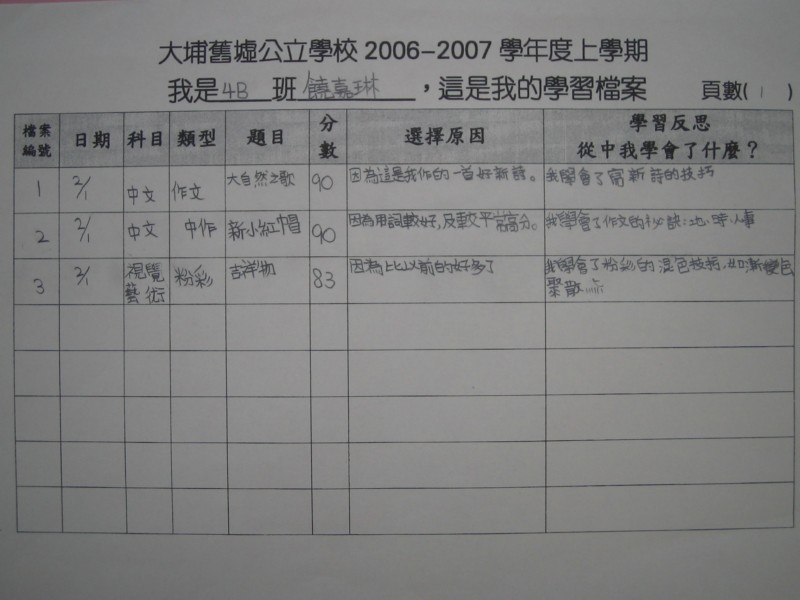 大埔舊墟公立學校 2006-2007 學年度上學期
我是 4B 班 饒嘉琳 ，這是我的學習檔案 頁數( 1 )
檔案編號 日期 科目 類型 題目 分數 選擇原因 學習反思 從中我學會了什麼？
1 2/1 中文 作文 大自然之歌 90 因為這是我作的一首好新詩。 我學會了寫新詩的技巧
2 2/1 中文 中作 新小紅帽 90 因為用詞較好,及較平常高分。 我學會了作文的秘訣:地、時、人事
3 2/1 視覺藝術 粉彩 吉祥物 83 因為比以前的好多了 我學會了粉彩的混色技巧,如漸變色
聚散